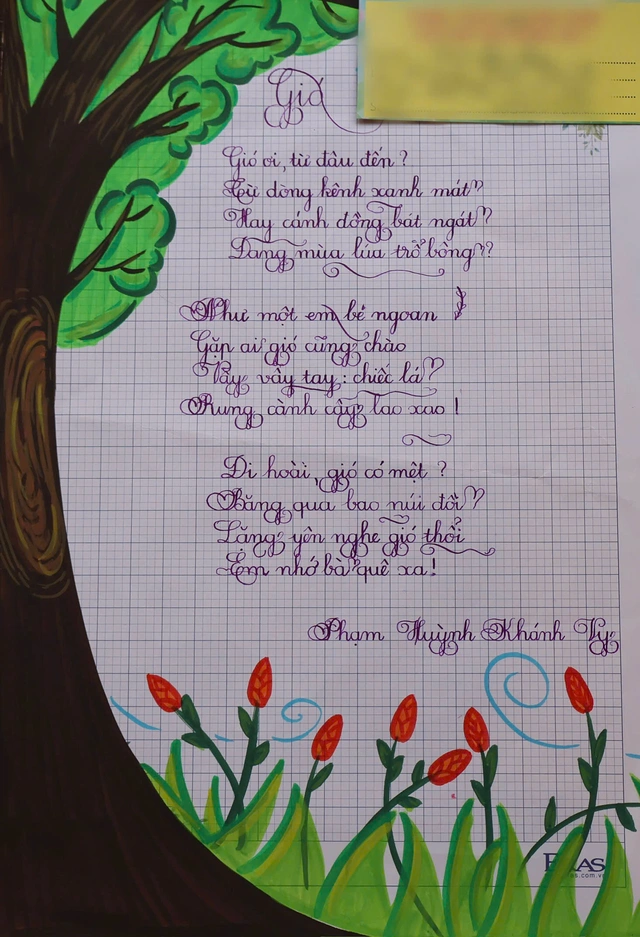 Gió
Gió ơi, từ đâu đến ?
Từ dòng kênh xanh mát
Hay cánh đồng bát ngát
Đang mùa lúa trổ bông ?
Như một em bé ngoan
Gặp ai gió cũng chào
Vẫy vẫy tay : chiếc lá
Rung cành cây lao xao !
Đi hoài, gió có mệt ?
Băng qua bao núi đồi
Lặng yên nghe gió thổi
Em nhớ bà quê xa !
Phạm Huỳnh Khánh Vy